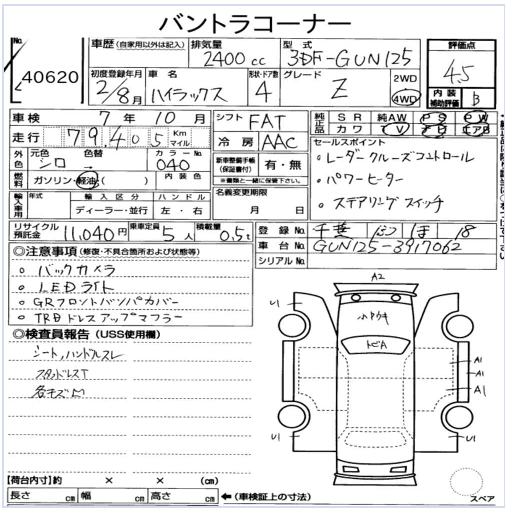 バントラコーナー
No. 40620
車歴 (自家用以外は記入) 排気量 2400 cc 型式 3DF-GUN125
評価点 4.5
初度登録年月 2/8月 車名 ハイラックス 形状・ドア数 4 グレード Z 2WD 4WD
内装補助評価 B
車検 7年 10月 シフト FAT
純正品 SR 純AW PS PW カワ TV ナビ エアB
走行 79,405 Km マイル 冷房 AAC
セールスポイント
外色 元色 シロ 色替 カラーNo. 040
新車整備手帳 (保証書付) 有・無
※書類と一緒に保管下さい
○レーダークルーズコントロール
燃料 ガソリン・軽油・( ) 内装色
○パワーヒーター
名義変更期限 月 日
○ステアリングスイッチ
輸入車用 年式 輸入区分 ディーラー・並行 ハンドル 左・右
リサイクル預託金 11,040円 乗車定員 5人 積載量 0.5t
登録No. 千葉 ほ 18
車台No. GUN125-3917062
シリアルNo.
◎注意事項 (修復・不具合箇所および状態等)
○バックカメラ
○LEDライト
○GRフロントバンパカバー
○TRDドレスアップマフラー
◎検査員報告 (USS使用欄)
シート,ハンドルスレ
各キズ凹
A2
U1
小ヘタウキ
トビA
A1
A1
A1
U1
U1
【荷台内寸】約 × × (cm)
長さ cm 幅 cm 高さ cm ←(車検証上の寸法)
スペア